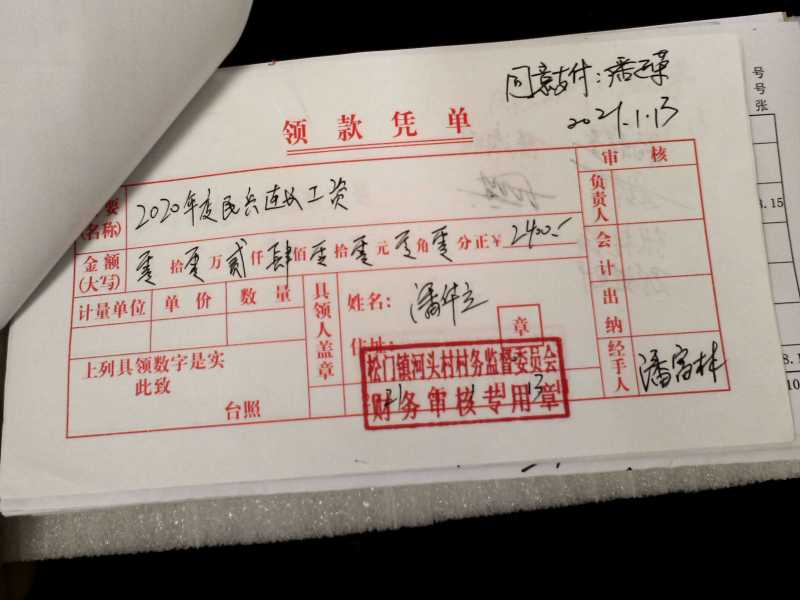 同意支付:潘
2021.1.13
领款凭单
要
(名称)
2020年度民兵连长工资
金额
(大写)
零拾零万贰仟肆佰零拾零元零角零分正¥2400.-
计量单位 单价 数量
具领人盖章
姓名:潘
住址:
章
上列具领数字是实
此致
台照
审核
负责人
会计
出纳
经手人
潘富林
松门镇河头村村务监督委员会
财务审核专用章
21 1 13
号
号
张
.15